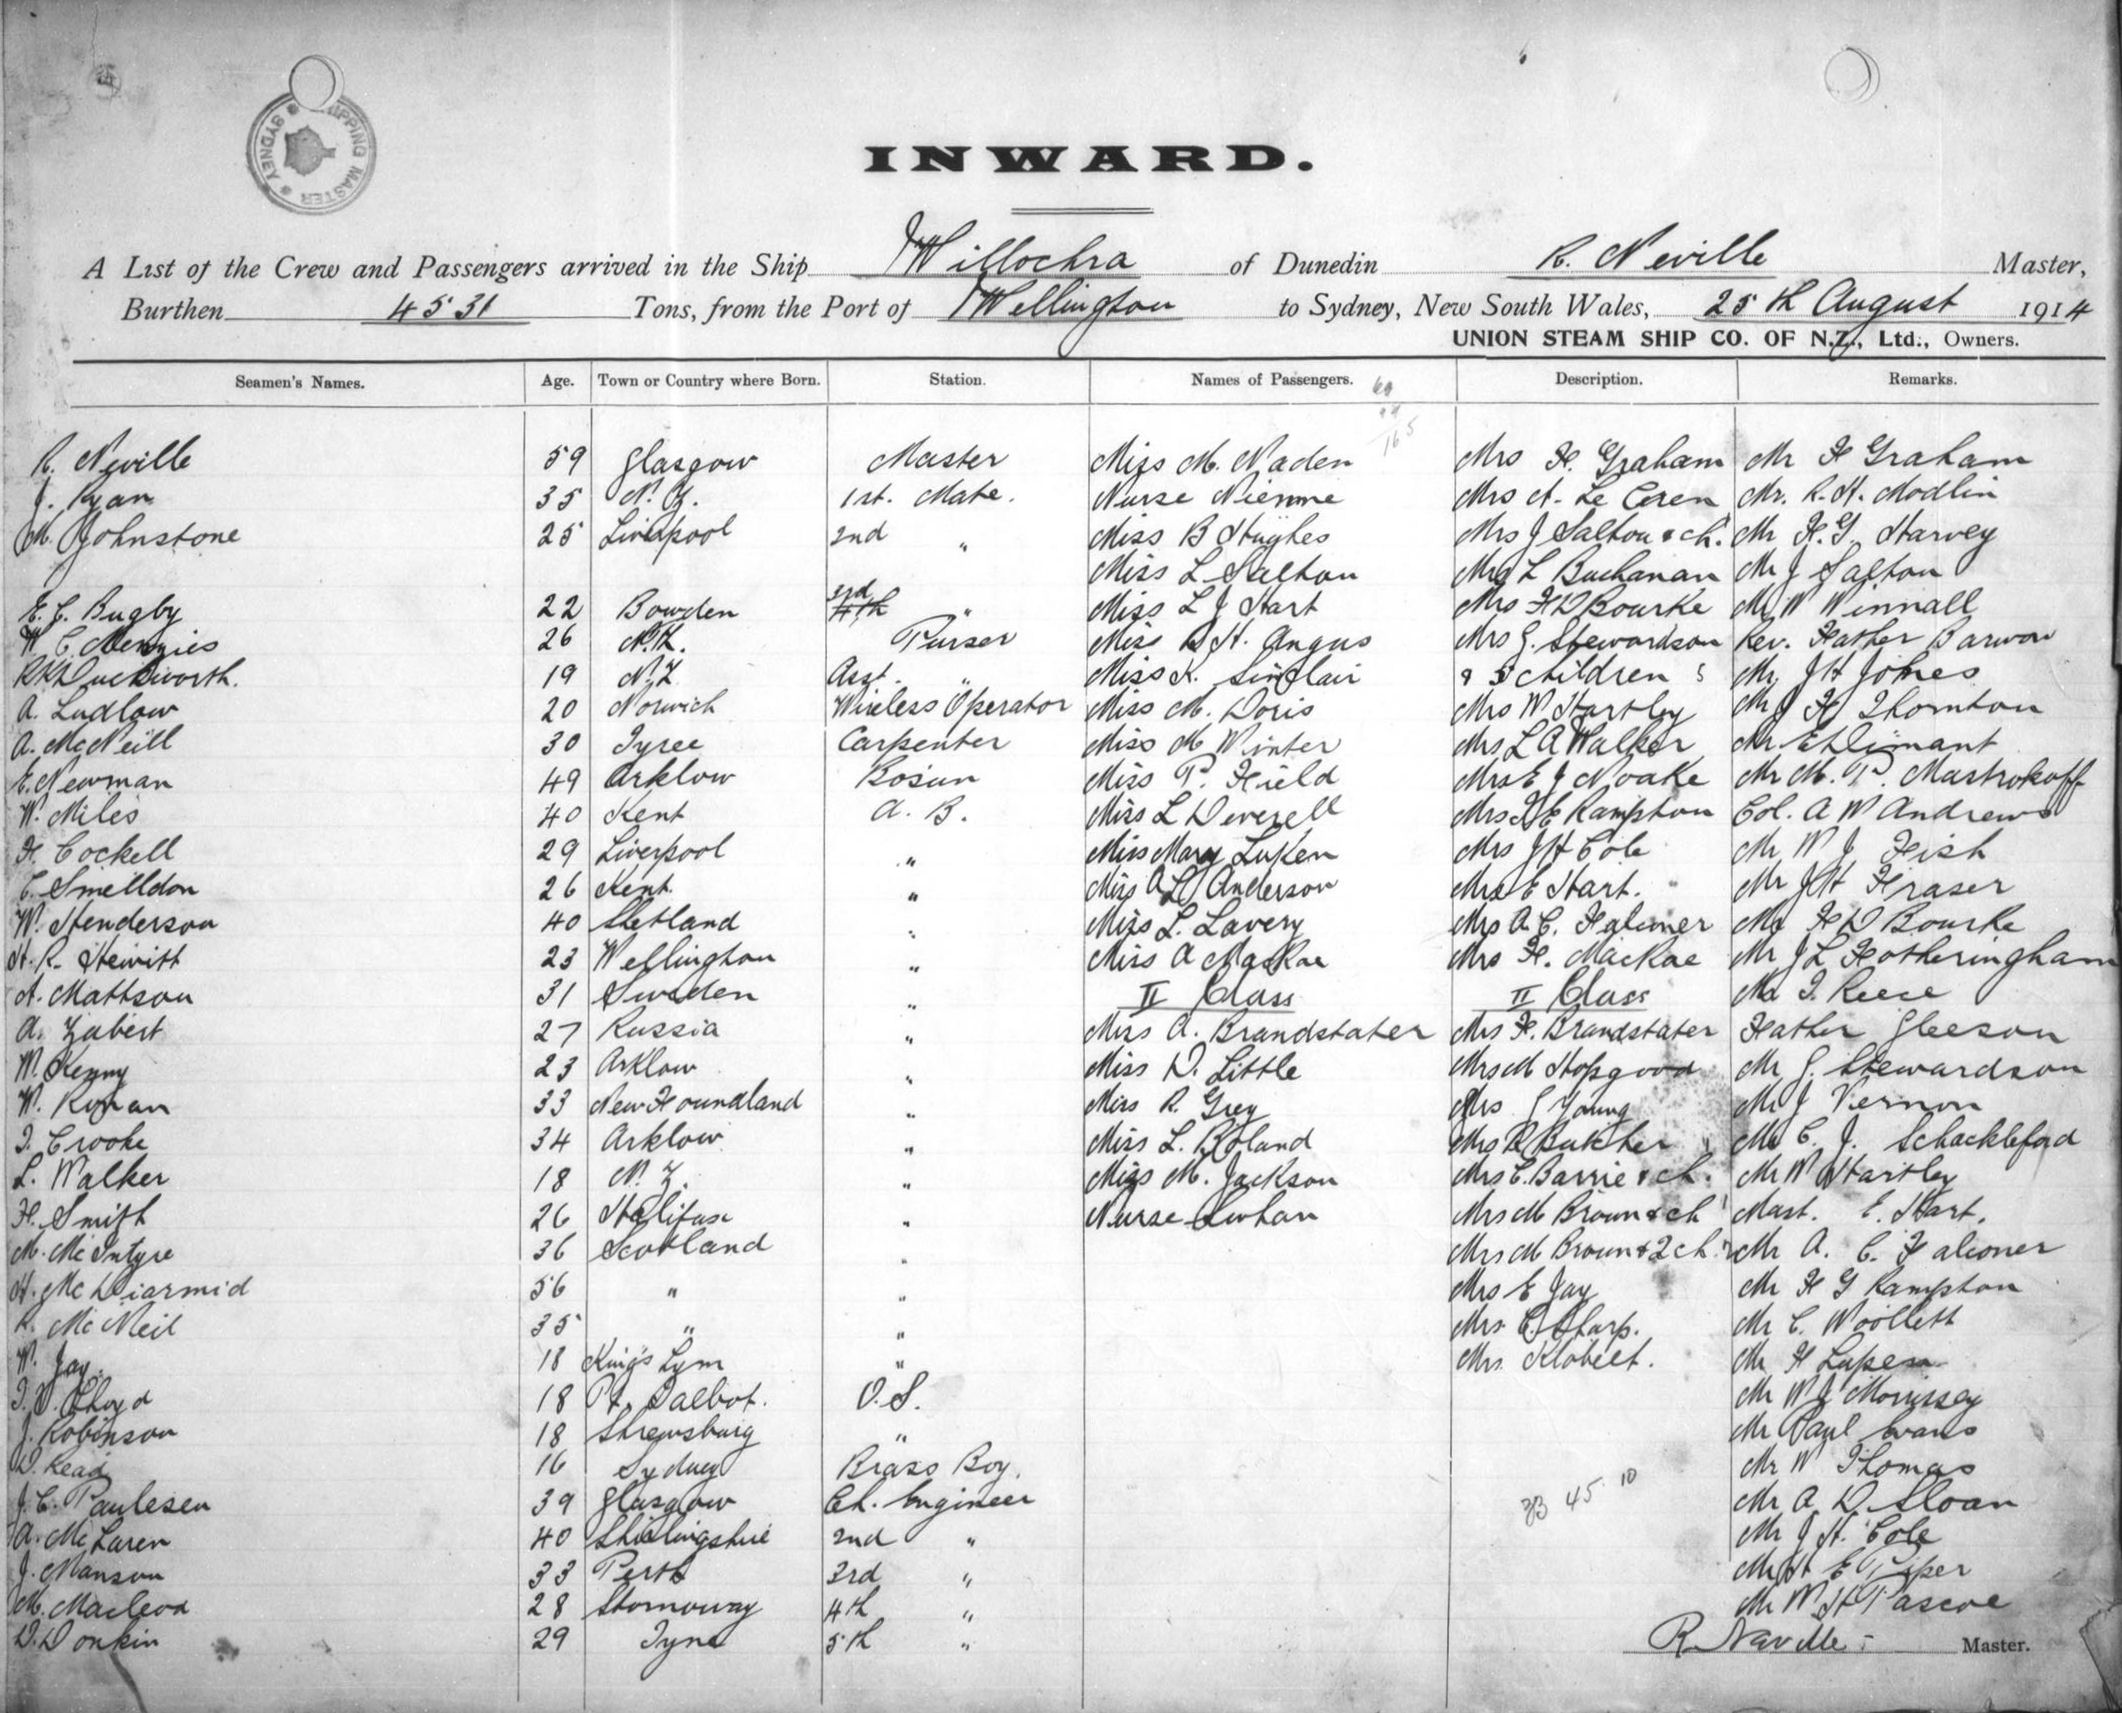 SHIPPING MASTER SYDNEY
INWARD.
A List of the Crew and Passengers arrived in the Ship Willochra of Dunedin R. Neville Master,
Burthen 4531 Tons, from the Port of Wellington to Sydney, New South Wales, 25th August 1914
UNION STEAM SHIP CO. OF N.Z., Ltd., Owners.
Seamen's Names. Age. Town or Country where Born. Station. Names of Passengers. Description. Remarks.
R. Neville 59 Glasgow Master Miss M. Naden Mrs H. Graham Mr H Graham
J. Ryan 35 N.Z. 1st. Mate. Nurse Mrs A. Le Ceren Mr. R.H. Modlin
M. Johnstone 25 Liverpool 2nd " Miss B Hughes Mrs J Salton & ch. Mr H.G. Harvey
Miss L Salton Mrs L Buchanan Mr J Salton
E.C. Bugby 22 Bowden 3rd 4th " Miss L J Hart Mrs H D Bourke Mr W Winnall
W. C. Menzies 26 N.Z. Purser Miss D H. Angus Mrs G. Stewardson Rev. Father Barwon
R K Duckworth. 19 N.Z Asst. " Miss K. Sinclair & 5 children Mr. J H Jones
A. Ludlow 20 Norwich Wireless Operator Miss M. Doris Mrs W Hartley Mr J H Thornton
A. McNeill 30 Tyree Carpenter Miss M Winter Mrs L A Walker Mr.
E. Newman 49 Arklow Bosun Miss P. Field Mrs E J Noake Mr M. P. Mastrokoff
W. Miles 40 Kent A. B. Miss L Deverell Mrs H E Rampton Col. A W Andrews
H. Cockell 29 Liverpool " Miss Mary Lupen Mrs J H Cole Mr W J Fish
C. Smelldon 26 Kent. " Miss A L Anderson Mrs E Hart. Mr J H Fraser
W. Henderson 40 Shetland " Miss L. Lavery Mrs A. C. Falconer Mr H D Bourke
H. R. Hewitt 23 Wellington " Miss A MacRae Mrs H. MacRae Mr J L Fotheringham
A. Mattson 31 Sweden " II Class II Class Mr T. Reece
A. Zabert 27 Russia " Miss A. Brandstater Mrs H. Brandstater Father Gleeson
W. Kenny 23 Arklow " Miss D. Little Mrs M Hopgood Mr G. Stewardson
W. 33 New Foundland " Miss R. Grey Mrs G Young Mr J Vernon
T. Crooke 34 Arklow " Miss L. Boland Mrs R Butcher Mr C. J. Schackleford
L. Walker 18 N. Z. " Miss M. Jackson Mrs C. Barrie & ch. Mr W Hartley
H. Smith 26 Halifax " Nurse Mrs M Brown & ch Mast. E. Hart.
M. McIntyre 36 Scotland " Mrs M Brown & 2 ch. Mr A. C. Falconer
H. McDiarmid 56 " " Mrs E Jay Mr H G Rampton
R. McNeil 35 " " Mrs C. Sharp. Mr C. Woollett
W. Jay. 18 Kings Lynn " Mrs Klobeet. Mr H Lupen
T. D. Lloyd 18 Pt. Talbot. O.S. Mr W J Morrissey
J. Robinson 18 Shrewsburg " Mr Paul Evans
D. Read 16 Sydney Brass Boy. Mr W Thomas
J. C. Paulesen 39 Glasgow Ch. Engineer 33 45 10 Mr A D Sloan
A. McLaren 40 Stirlingshire 2nd " Mr J H. Cole
J. Manson 33 Perth 3rd " Mr H E Piper
M. Macleod 28 Stornoway 4th " Mr W H Pascoe
D. Donkin 29 Tyne 5th " R. Neville Master.